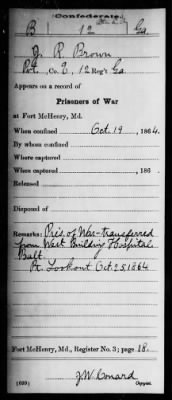 Confederate.
B 12 Ga
D. R. Brown
Pvt., Co. , 12 Reg't Ga
Appears on a record of
Prisoners of War
at Fort McHenry, Md.
When confined Oct. 19, 1864.
By whom confined
Where captured
When captured , 186 .
Released
Disposed of
Remarks: Pris. of War-transferred
from West Building Hospital
Balt.
Pt. Lookout Oct. 25, 1864
Fort McHenry, Md., Register No. 3; page 18.
J.W. Conard
(639) Copyist.